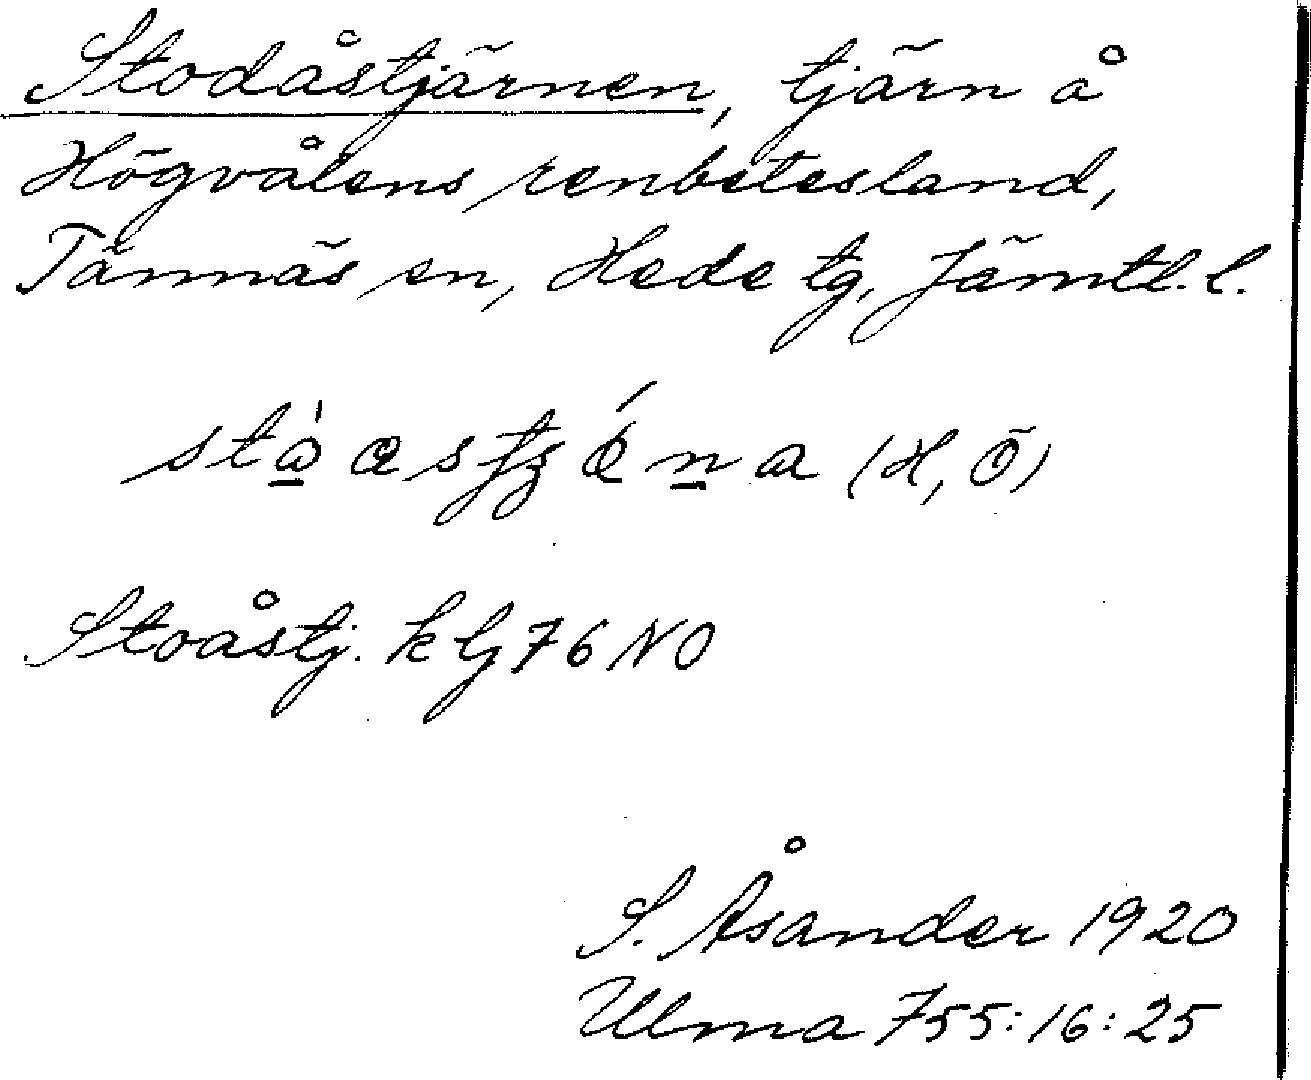 Stodåstjärnen, tjärn å
Högvålens renbetesland,
Tännäs sn, Hede tg, Jämtl. l.
(H, Ö)
Stoåstj. k bl 76 NO
S. Åsander 1920
Ulma 755:16:25